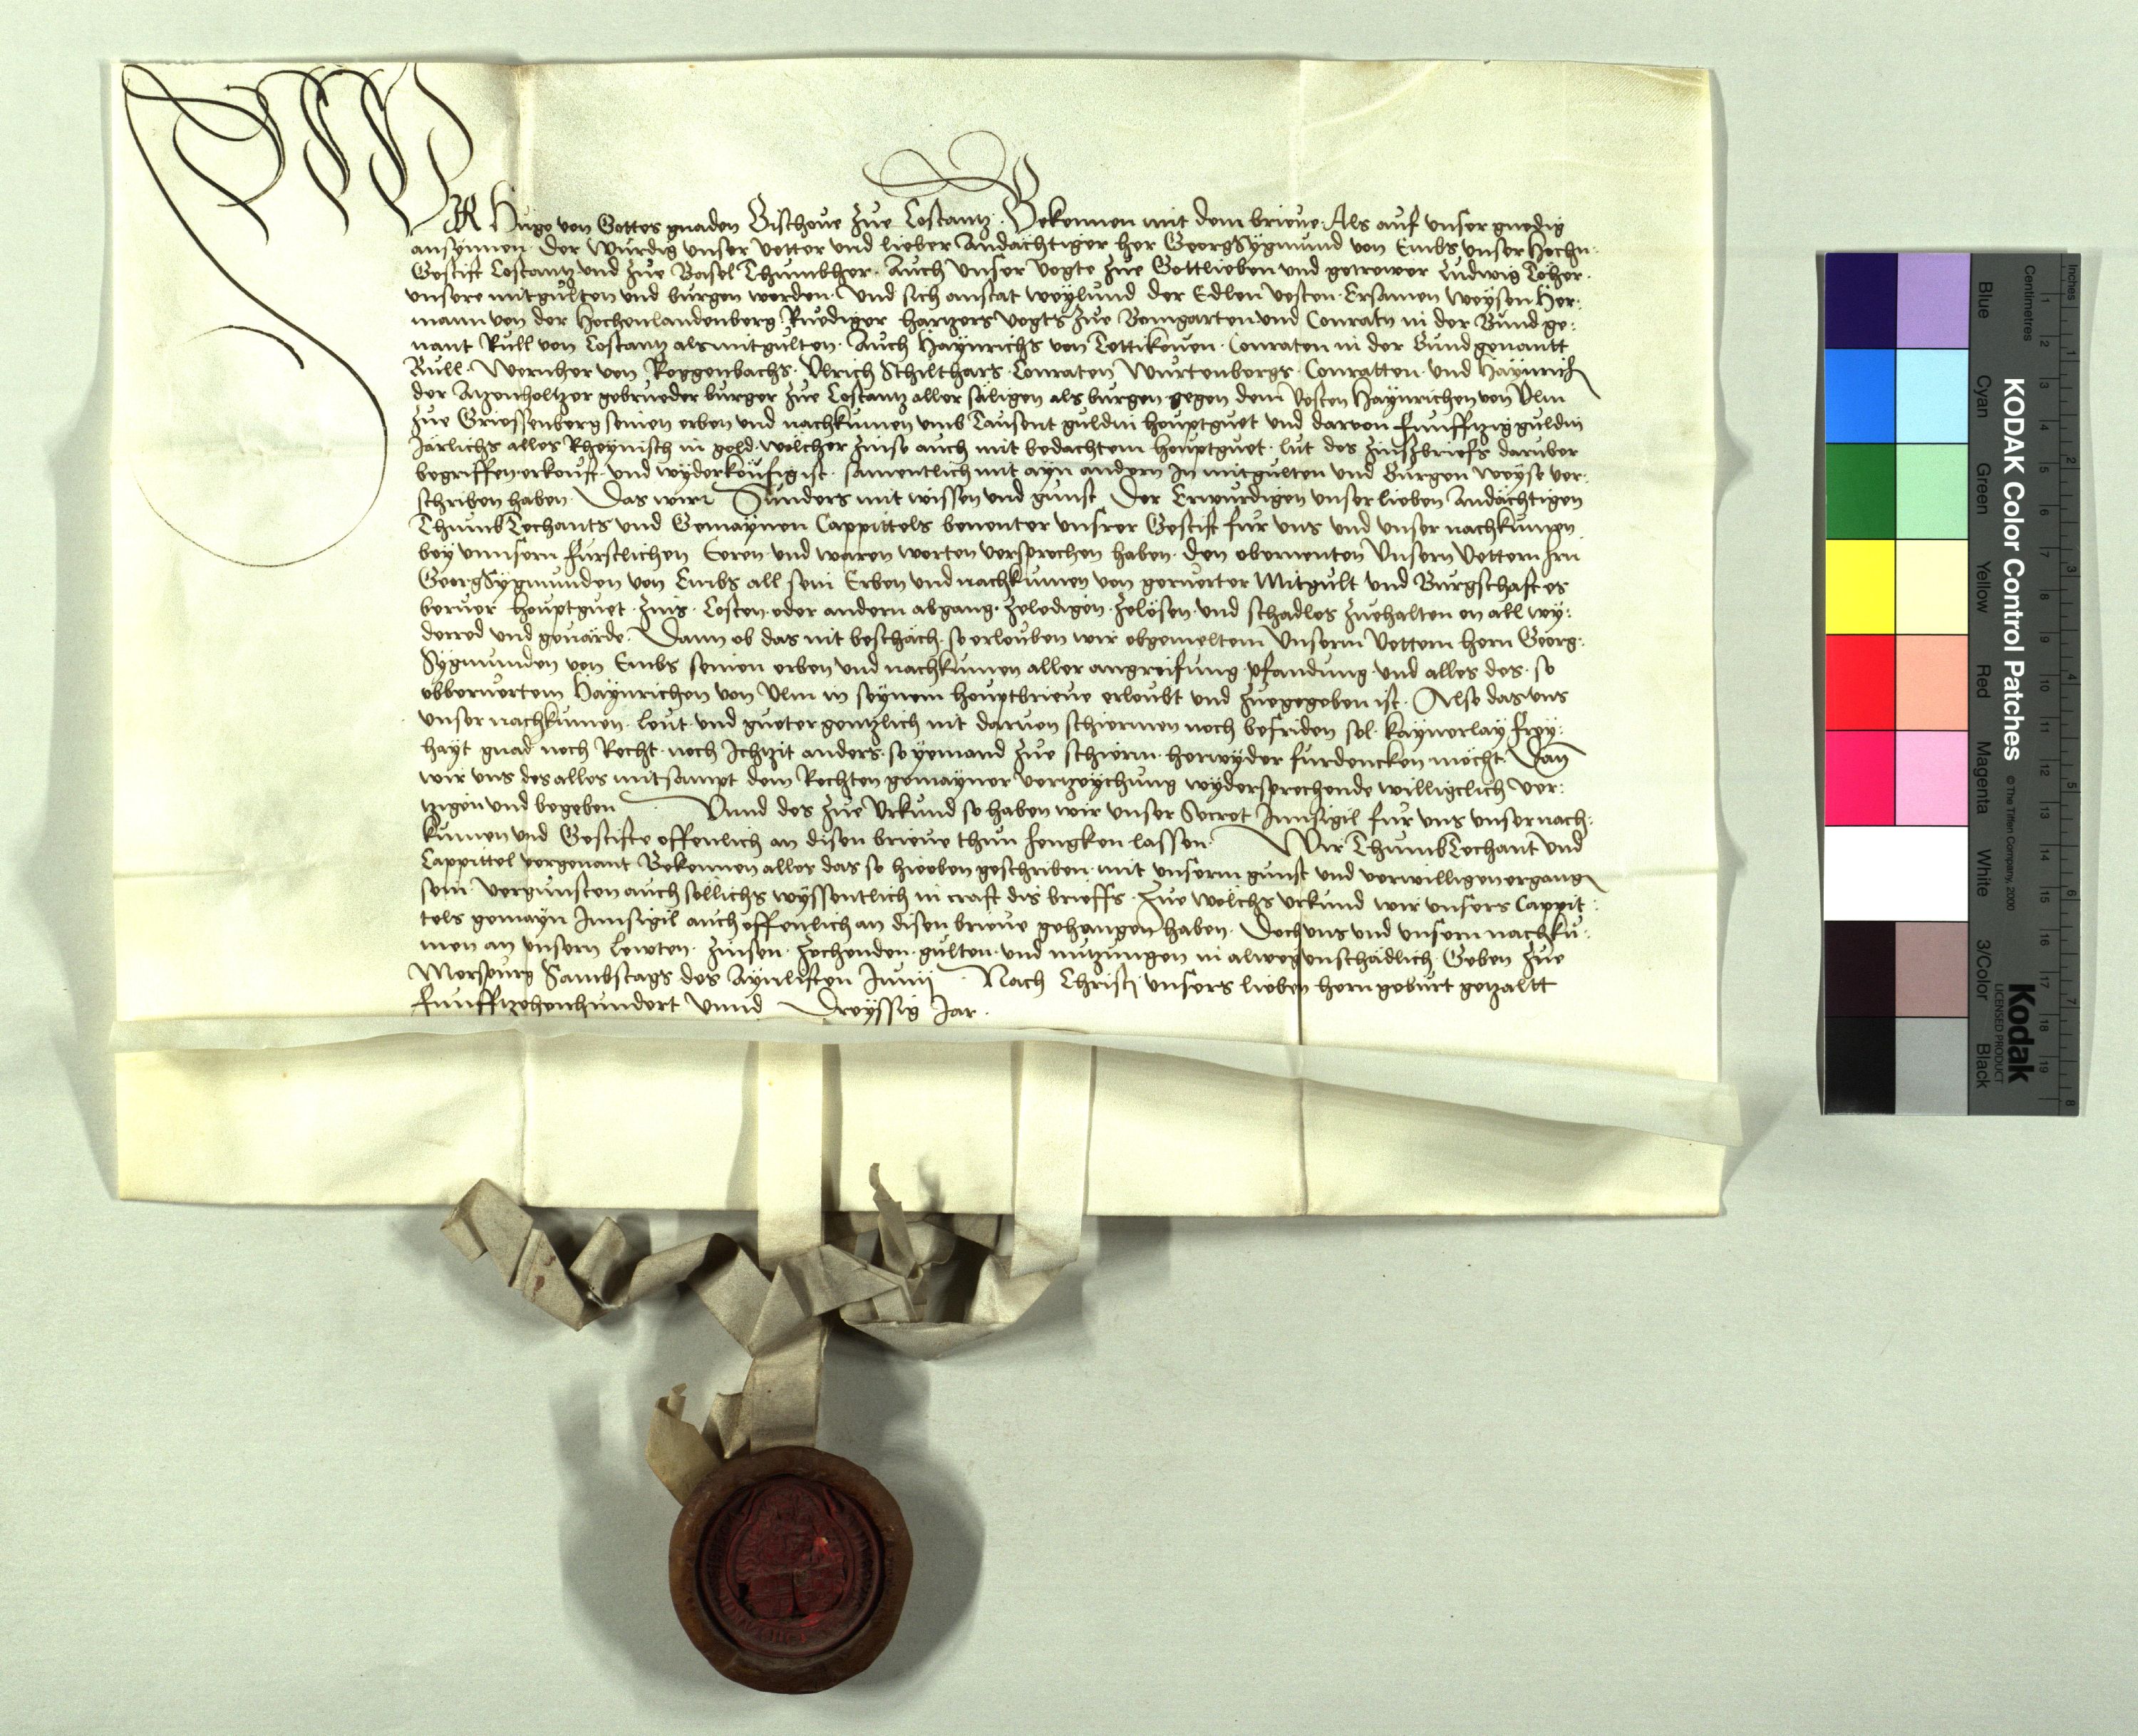 WIR Hugo von Gottes gnaden Bischove zue Costantz. Bekennen mit dem brieve. Als auf unser gnedig
ansynnen der wurdig unser vetter und lieber Andächtiger her Georg Sygmund von Embs unser Hochn.
Gestift Costantz und zue Basel Thumbher. Auch unser vogte zue Gottlieben und getrewer Ludwig
unsere mitgulten und burgen worden. Und sich anstat weylund der Edlen vesten. Ersamen weysen Her:
mann von der Hochenlandenberg Ruediger hartzers vogts zue Bomgarten und Conratn in der Bund ge:
nant Rull von Costantz als mitgulten. Auch Haynrichs von Tettikoven. Conraten in der Bund genantt
Rull. Wernher von Roggenbachs. Ulrich Schilthars. Conraten Wurtenbergs. Conratten und Haynrich
der Atzenholtzer gebrueder burger zue Costantz aller säligen als burgen gegen dem vesten Haynrichen von Ulm
zue Griessenberg seinen erben und nachkumen umb Tausent guldin houptguet und darvon funffizig guldin
Järlichs alles Rheynisch in gold. wölcher zinse auch mit bedachtem houptguet. lut des zinszbriefs daruber
begriffen erkouft und wyderköufig ist. samentlich mit ayn andern In mitgulten und Burgen weyse ver:
schriben haben. Das wir Sunders mit wissen und gunst Der Erwurdigen unser lieben Andächtigen
Thumb Techants und Gemaynen Cappittels benenter unsrer Gestift fur uns und unser nachkumen
bey unnsern furstlichen Eeren und waren worten versprochen haben. den obernenten Unsern Vettern hrn
Georg Sygmunden von Embs all sein Erben und nachkumen von geruerter Mitgult und Burgschaft es
beruer houptguet. zins. Costen. oder andern abgang. zeledigen. zelösen. und schadlos zuehalten on all wy:
derred und gevärde. Dann ob das nit beschäch. so erlouben wir obgemeltem Unserm Vettern hern Georg:
Sygmunden von Embs seinen erben und nachkumen aller angreifung pfandung und alles des. so
obberuertem Haynrichen von Ulm in seynem houptbrieve erloubt und zuegegeben ist. Also das uns
unser nachkumen. leut und gueter gentzlich nit darvon schiermen noch befriden sol. kaynerlay frey:
hayt gnad noch Recht. noch Ichtzit anders. so yemand zue schierm. herwyder furdencken möcht. Dan
wir uns des alles mitsampt dem Rechten gemayner vertzeychung wydersprechende willigclich ver:
tzigen und begeben. Unnd des zue Urkund so haben wir unser Secret Innsigil fur uns unser nach:
kumen und Gestifte offenlich an disen brieve thun hengken lassen. Wir Thumb Techant und
Cappittel vorgenant Bekennen alles das so hieoben geschriben. mit unserm gunst und verwilligen ergangn
sein. Vergunsten auch söllichs wyssentlich in craft dis brieffs. Zue wölchs Urkund wir unsers Cappit:
tels gemayn Innsigil auch offenlich an disen brieve gehangen haben. Doch uns und unsern nachku:
men an unsern Lewten. zinsen. zechenden. gulten. und nutzungen in alweg unschädlich. Geben zue
Merspurg Sambstags des Aynliften Junij. Nach Christj unsers lieben hern geburt getzaltt
funffizehenhundert Unnd Dreyssig Jar.
KODAK Color Control Patches
© The Tiffen Company, 2000
Kodak
LICENSED PRODUCT
Blue Cyan Green Yellow Red Magenta White 3/Color Black
Inches 1 2 3 4 5 6 7 8
Centimetres 1 2 3 4 5 6 7 8 9 10 11 12 13 14 15 16 17 18 19